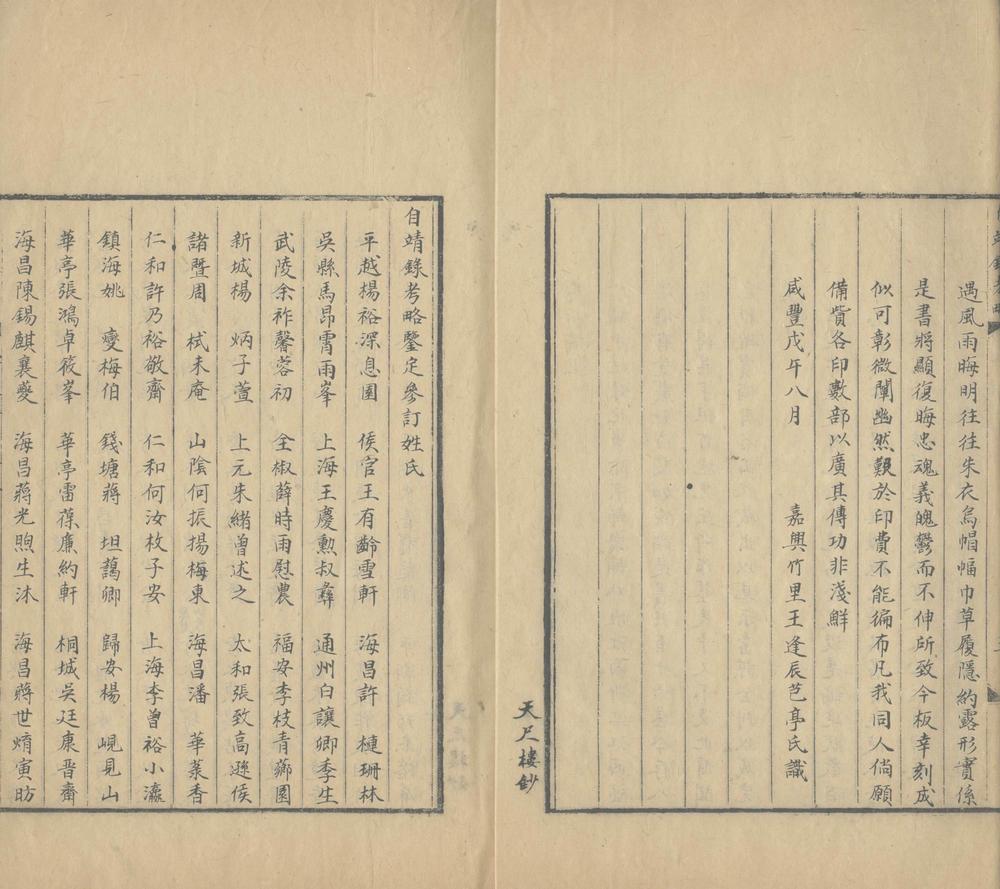 遇風雨晦明往往朱衣烏帽幅巾草履隱約露形實係
是書將顯復晦忠魂義魄鬱而不伸所致今板幸刻成
似可彰微闡幽然艱於印費不能徧布凡我同人倘願
備貲各印數部以廣其傳功非淺鮮
咸豐戊午八月 嘉興竹里王逢辰芑亭氏識
天尺樓鈔
自靖錄考略鑒定參訂姓氏
平越楊裕深息園 侯官王有齡雪軒 海昌許槤珊林
吳縣馬昂霄雨峯 上海王慶勳叔彝 通州白讓卿季生
武陵余祚馨蓉初 全椒薛時雨慰農 福安李枝青薌園
新城楊炳子萱 上元朱緒曾述之 太和張致高遜侯
諸暨周栻未庵 山陰何振揚梅東 海昌潘華菉香
仁和許乃裕敬齋 仁和何汝枚子安 上海李曾裕小瀛
鎮海姚燮梅伯 錢塘蔣坦藹卿 歸安楊峴見山
華亭張鴻卓筱峯 華亭雷葆廉約軒 桐城吳廷康晋齋
海昌陳錫麒襄夔 海昌蔣光煦生沐 海昌蔣世㷟寅昉